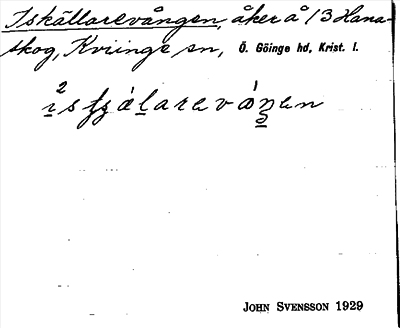 Iskällarevången, åker å 13 Hana-
skog, Kviinge sn, Ö. Göinge hd, Krist. l.
JOHN SVENSSON 1929